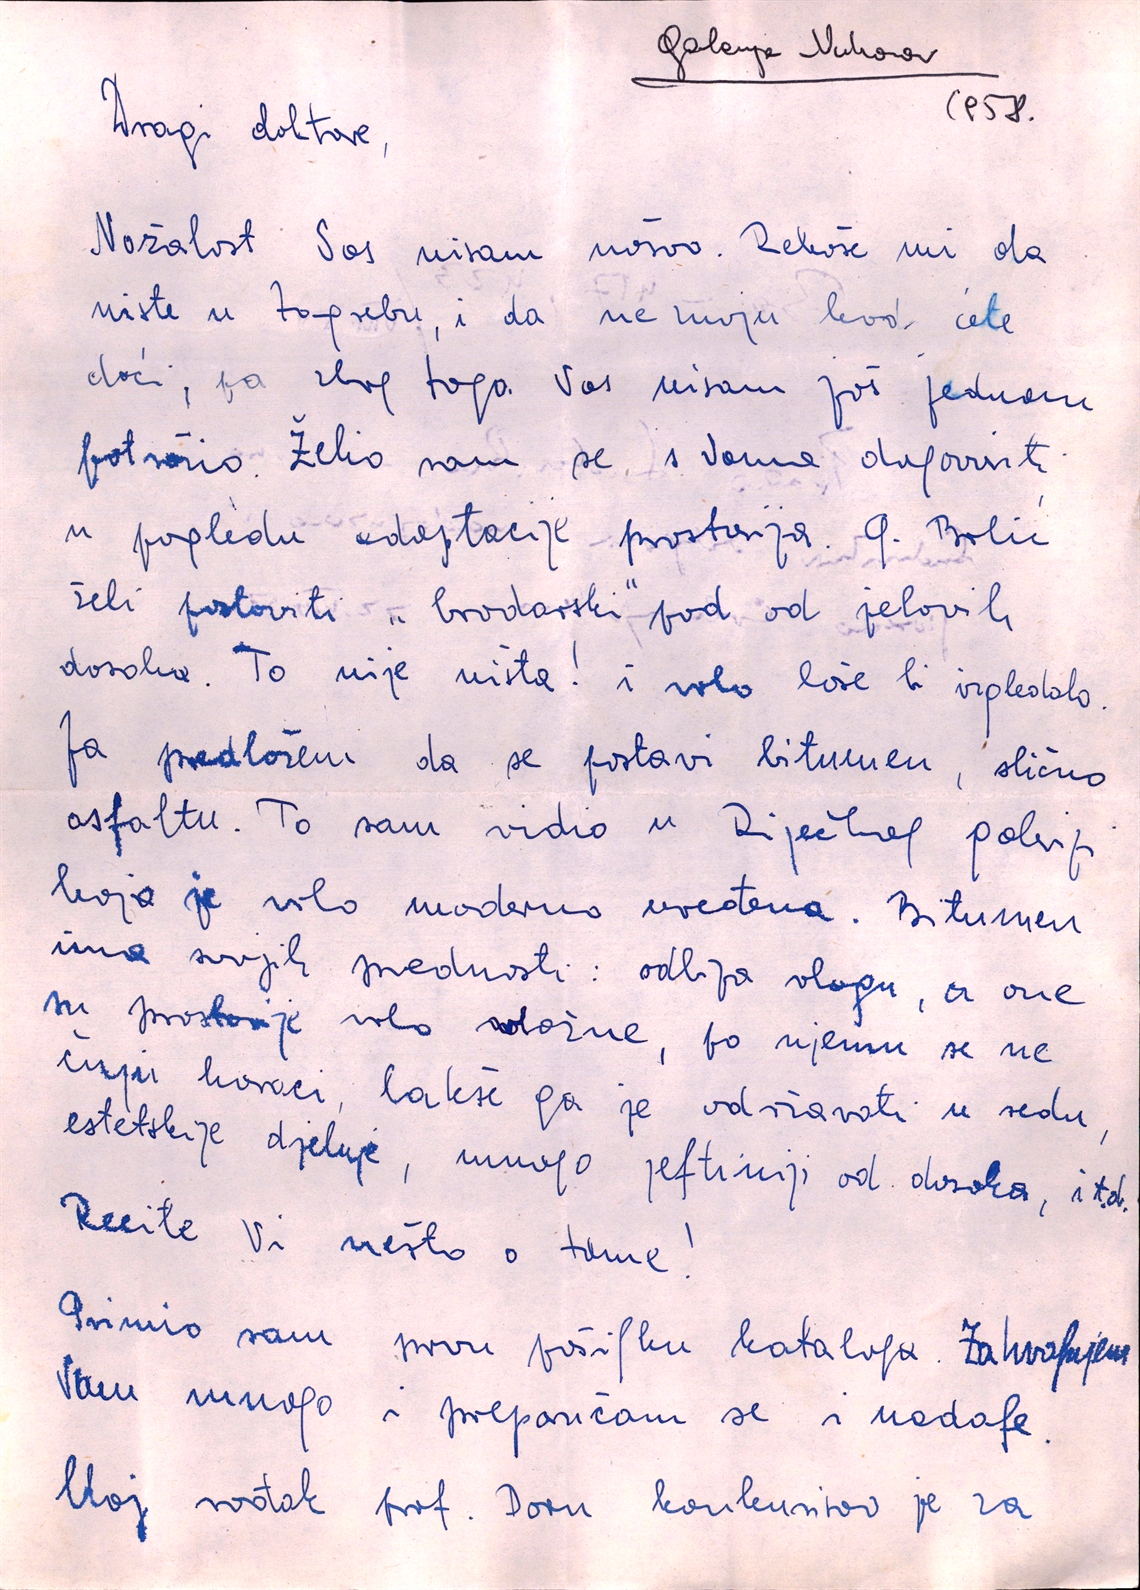 Galerija Vukovar
1958.
Dragi doktore,
Nažalost Vas nisam našao. Rekoše mi da
niste u Zagrebu, i da ne znaju kad ćete
doći, pa zbog toga Vas nisam još jednom
potražio. Želio sam se s Vama dogovoriti
u pogledu adaptacije prostorija. G. Brlić
želi postaviti „brodarski" pod od jelovih
dasaka. To nije ništa! i vrlo loše bi izgledalo.
Ja predložem da se postavi bitumen, slično
asfaltu. To sam vidio u Riječkoj galeriji
koja je vrlo moderno uređena. Bitumen
ima svojih prednosti: odbija vlagu, a one
su prostorije vrlo vlažne, po njemu se ne
čuju koraci, lakše ga je održavati u redu,
estetskije djeluje, mnogo jeftiniji od dasaka, i t.d.
Recite Vi nešto o tome!
Primio sam prvu pošiljku kataloga. Zahvaljujem
Vam mnogo i preporučam se i nadalje.
Moj rođak prof. Dorn konkurirao je za